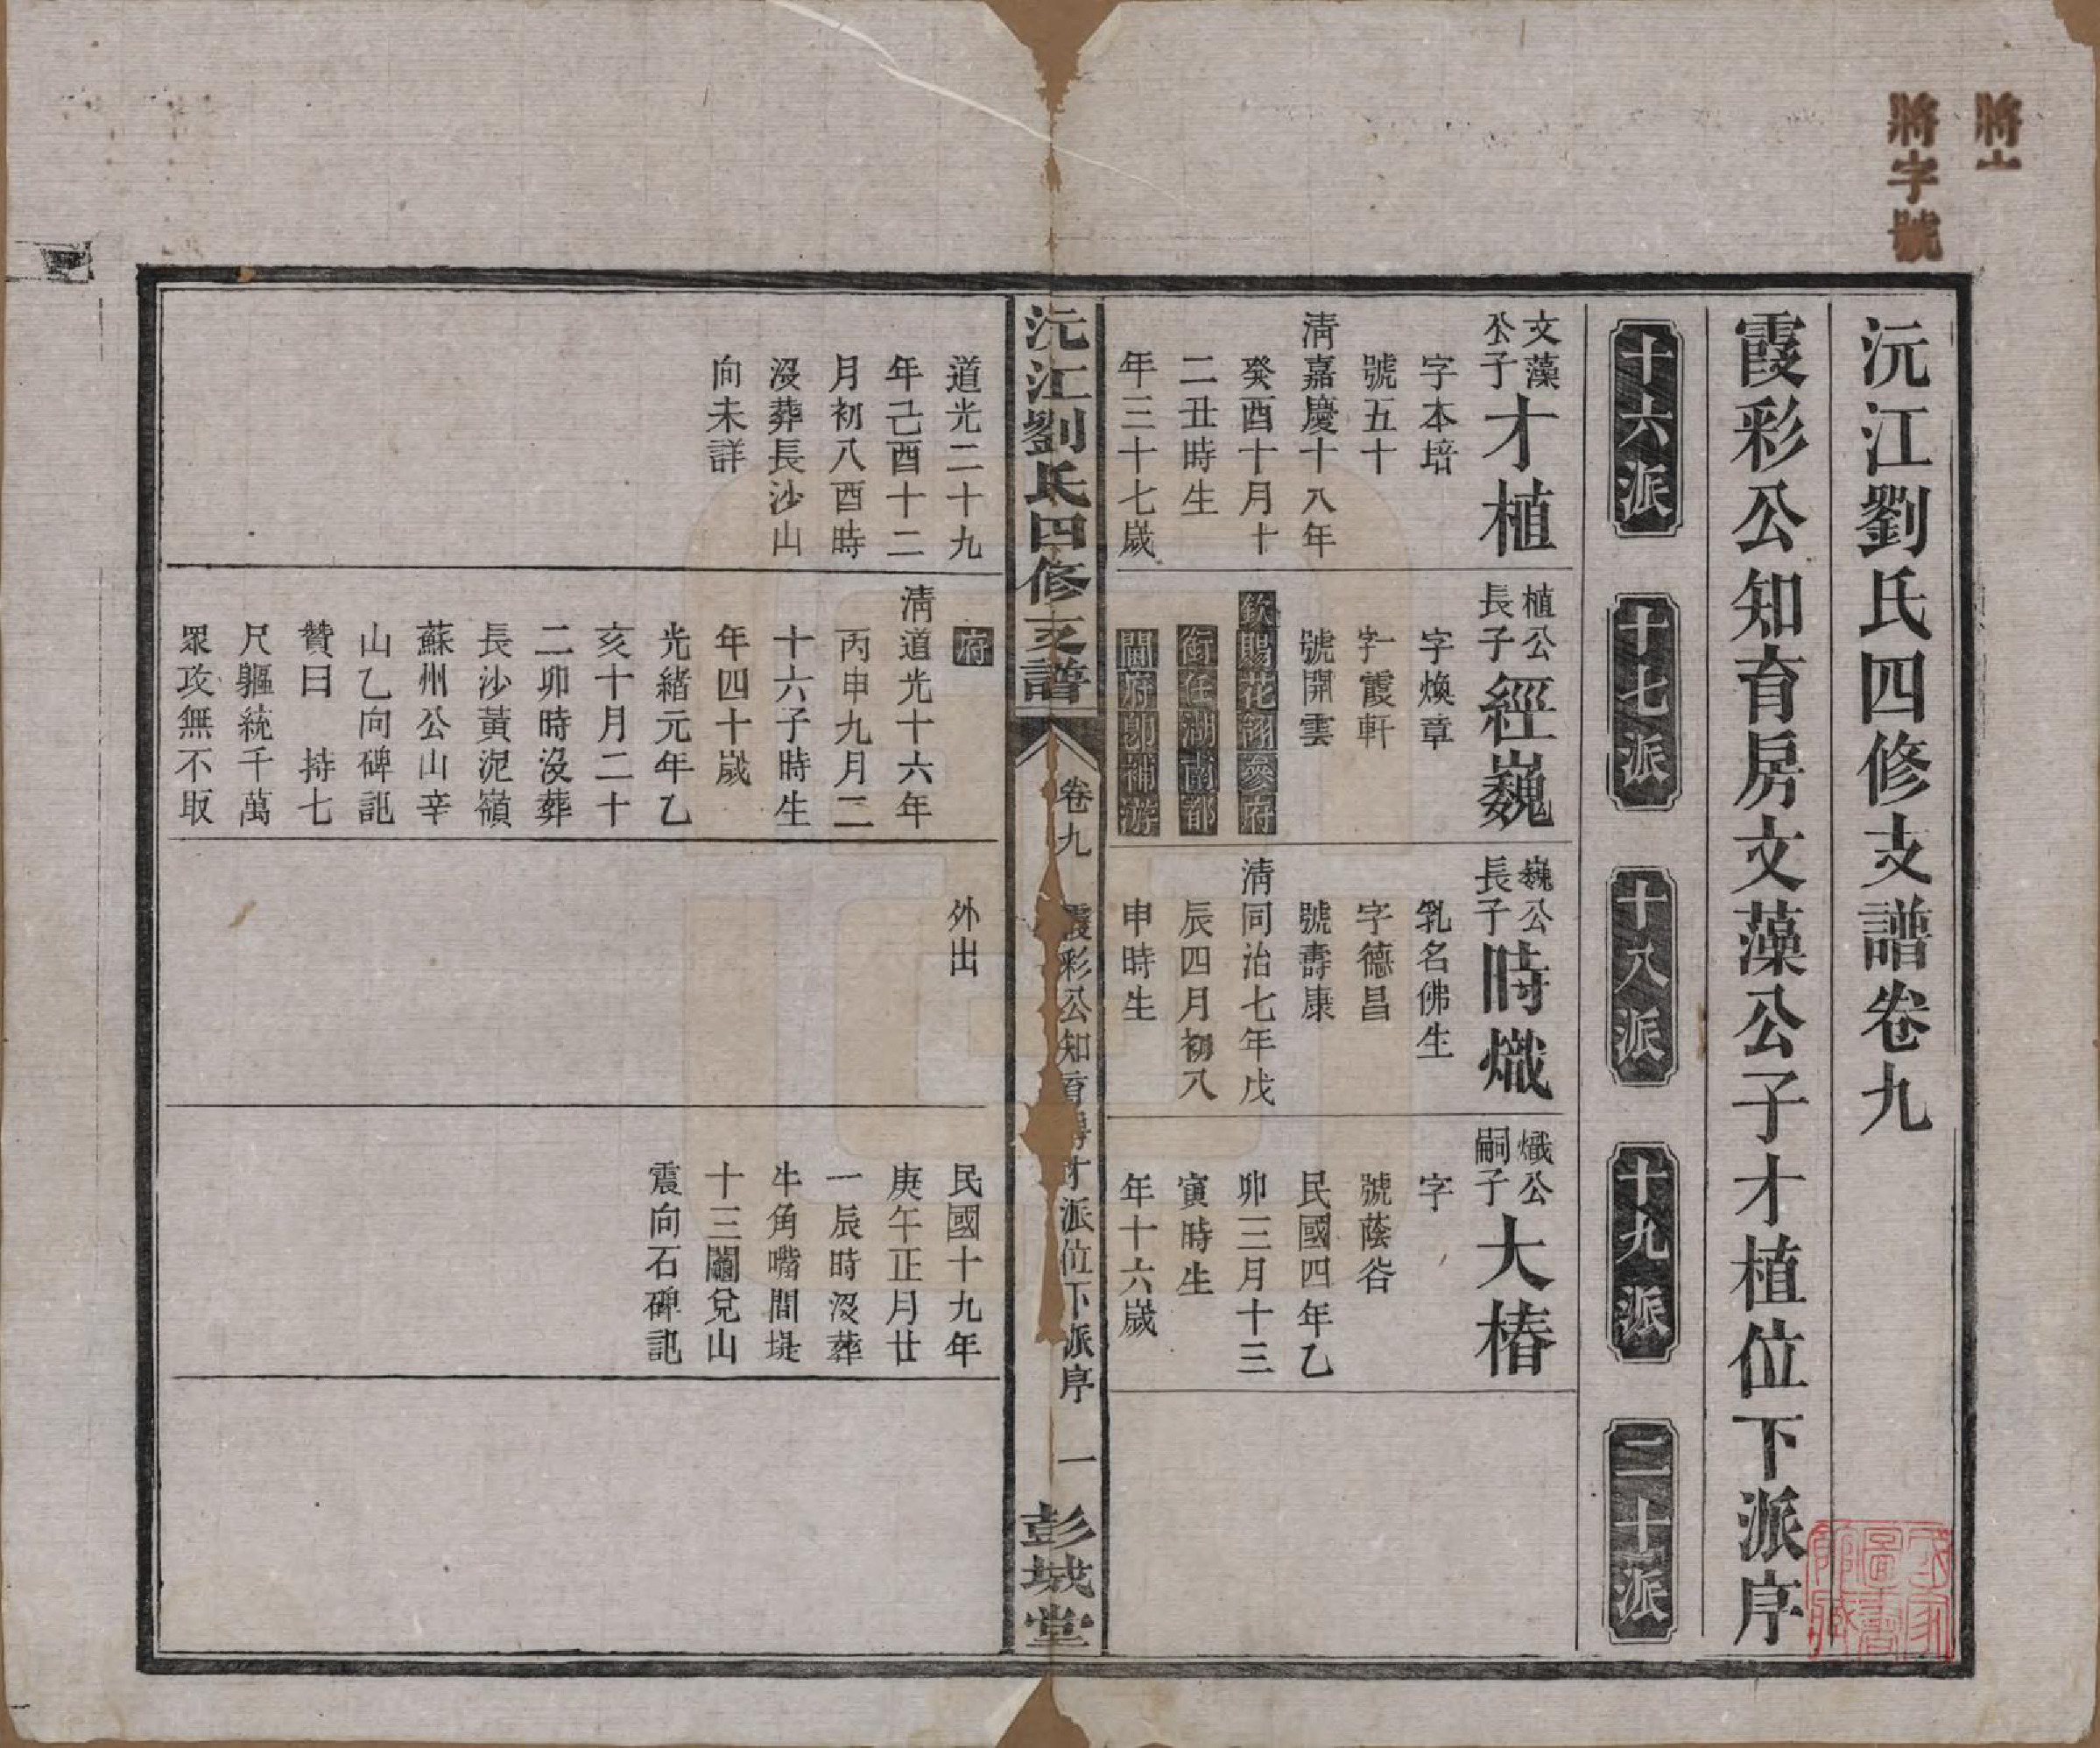 將字
將字號
沅江劉氏四修支譜卷九
霞彩公知育房文藻公子才植位下派序
十六派
十七派
十八派
十九派
二十派
文藻
公子
才植
字本培
號五十
清嘉慶十八年
癸酉十月十
二丑時生
年三十七歲
道光二十九
年己酉十二
月初八酉時
沒葬長沙山
向未詳
植公
長子
經巍
字煥章
一字霞軒
號開雲
欽賜花翎叅府
銜任湖南都
閫府卽補游
府
清道光十六年
丙申九月二
十六子時生
年四十歲
光緒元年乙
亥十月二十
二卯時沒葬
長沙黃泥嶺
蘇州公山辛
山乙向碑誌
贊曰 持七
尺軀統千萬
眾攻無不取
巍公
長子
時熾
乳名佛生
字德昌
號壽康
清同治七年戊
辰四月初八
申時生
外出
熾公
嗣子
大椿
字
號蔭谷
民國四年乙
卯三月十三
寅時生
年十六歲
民國十九年
庚午正月廿
一辰時沒葬
牛角嘴間堤
十三兌山
震向石碑誌
沅江劉氏四修支譜
卷九
霞彩公知育房才派位下派序
一
彭城堂
國家
圖書
館藏